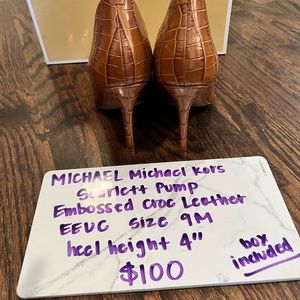 MICHAEL Michael Kors
Scarlett Pump
Embossed Croc Leather
EEUC Size 9M
heel height 4"
$100
box
included